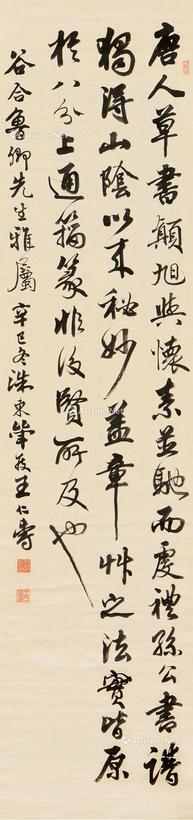 唐人草書顛旭與懷素並馳而虔禮孫公書譜
獨得山陰以来秘妙蓋章艸之法實皆原
於八分上通籀篆非後賢所及也
谷合魯卿先生雅屬 辛巳冬洙東王仁壽